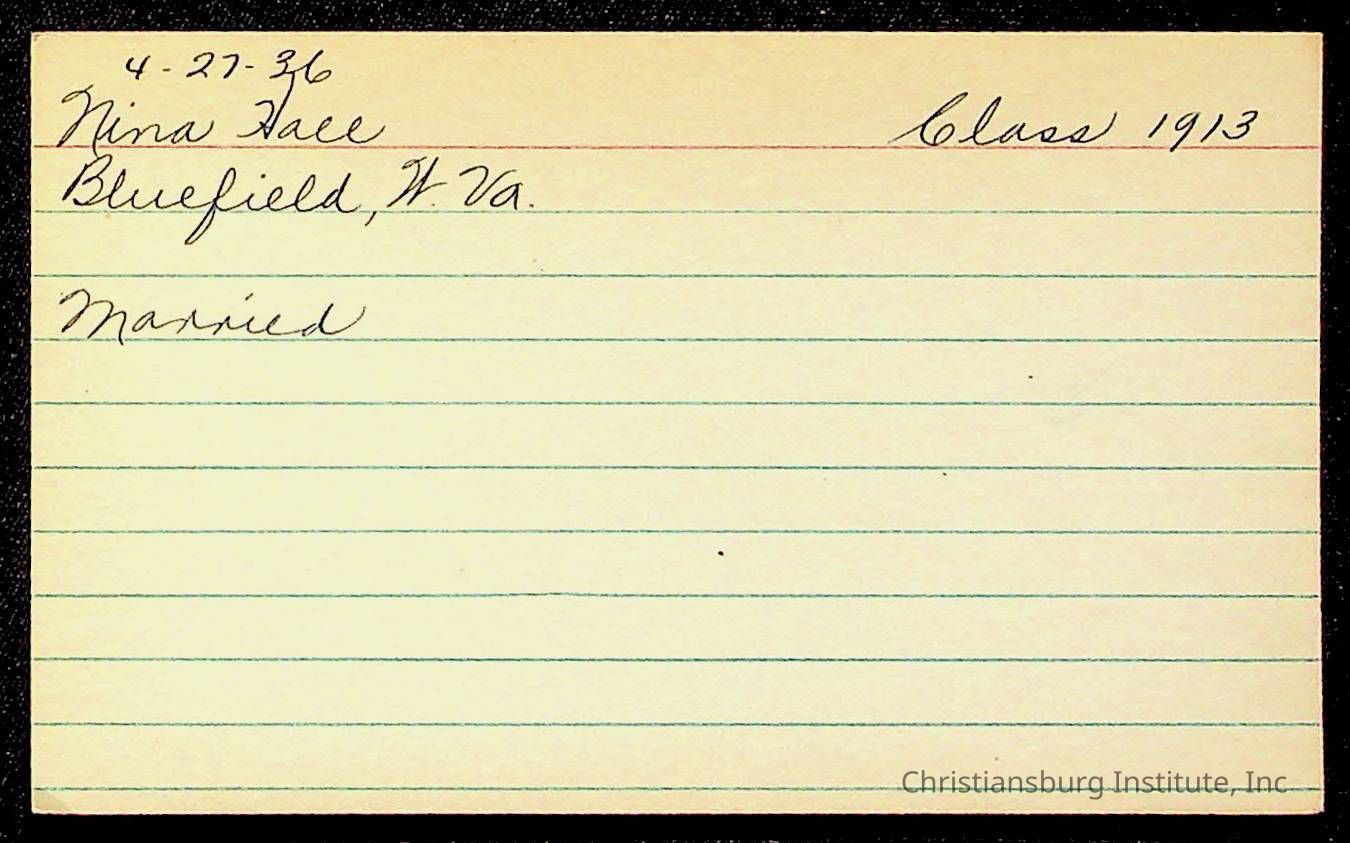 4-27-36
Nina Hall Class 1913
Bluefield, W. Va.
Married
Christiansburg Institute, Inc